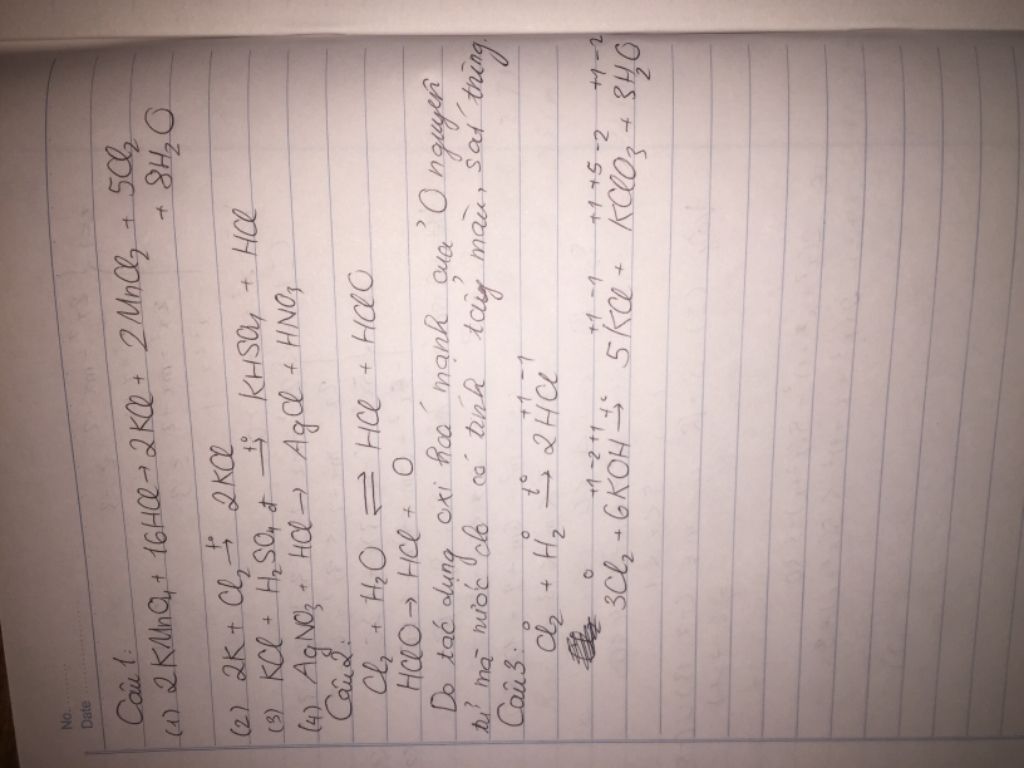 No. ............
Date ....................
Câu 1:
(1) 2KMnO₄ + 16HCl → 2KCl + 2MnCl₂ + 5Cl₂
+ 8H₂O
(2) 2K + Cl₂ →t° 2KCl
(3) KCl + H₂SO₄ đ →t° KHSO₄ + HCl
(4) AgNO₃ + HCl → AgCl + HNO₃
Câu 2:
Cl₂ + H₂O ⇌ HCl + HClO
HClO → HCl + O
Do tác dụng oxi hoá mạnh của O nguyên
tử mà nước clo có tính tẩy màu, sát trùng.
Câu 3:
0 0 t° +1 -1
Cl₂ + H₂ → 2HCl
0 +1 -2 +1 +1 -1 +1 +5 -2 +1 -2
3Cl₂ + 6KOH →t° 5KCl + KClO₃ + 3H₂O